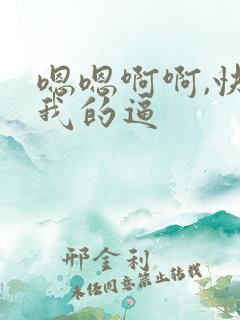 嗯嗯啊啊,快
我的逼
邢金利
未经同意禁止转载